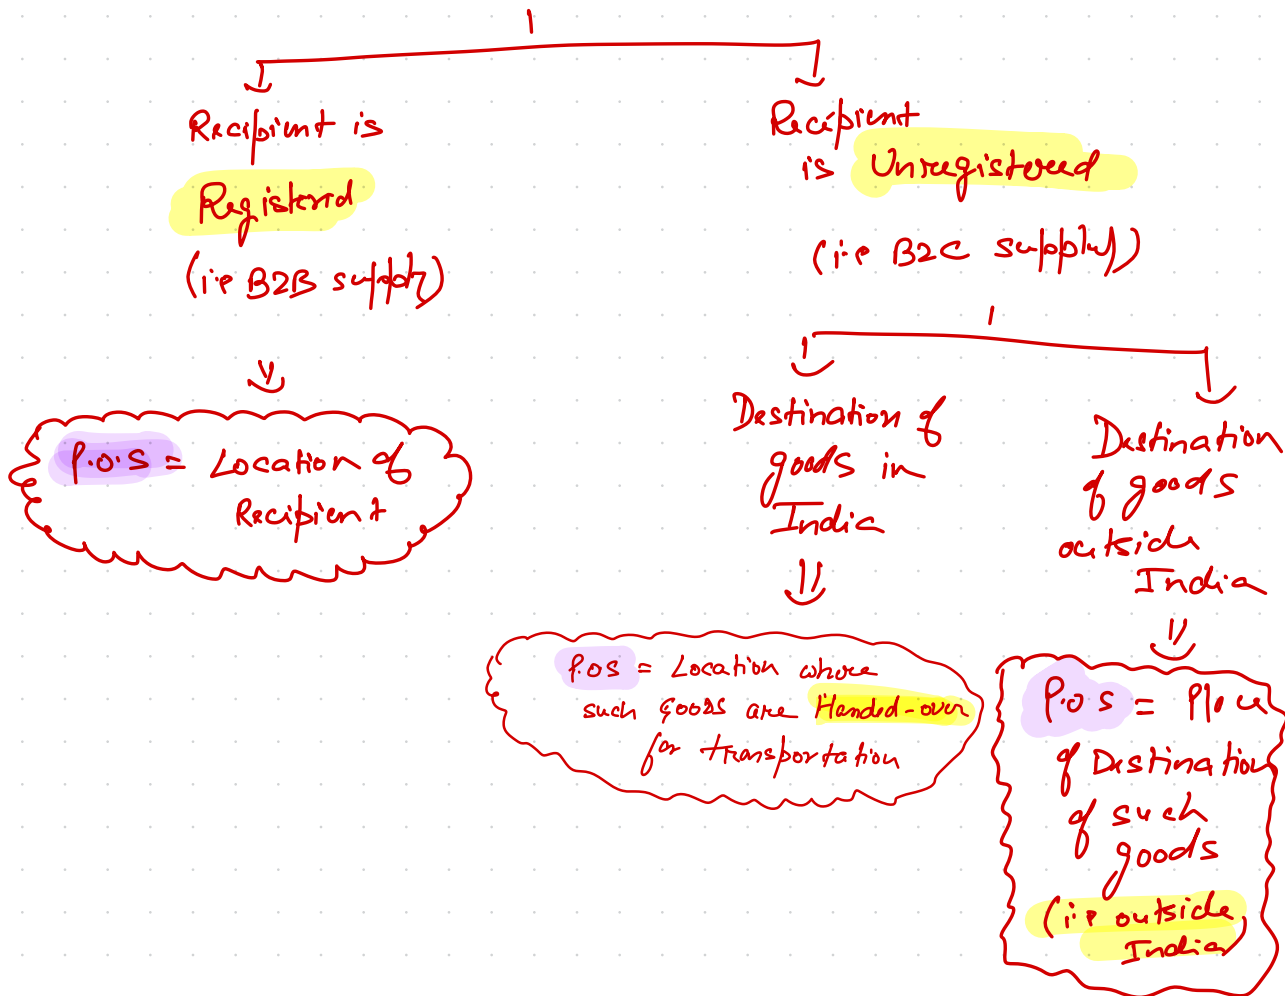 Recipient is
Registered
(i.e B2B supply)
P.O.S = Location of
Recipient
Recipient
is Unregistered
(i.e B2C supply)
Destination of
goods in
India
P.O.S = Location where
such goods are Handed-over
for transportation
Destination
of goods
outside
India
P.O.S = Place
of Destination
of such
goods
(i.e outside
India)